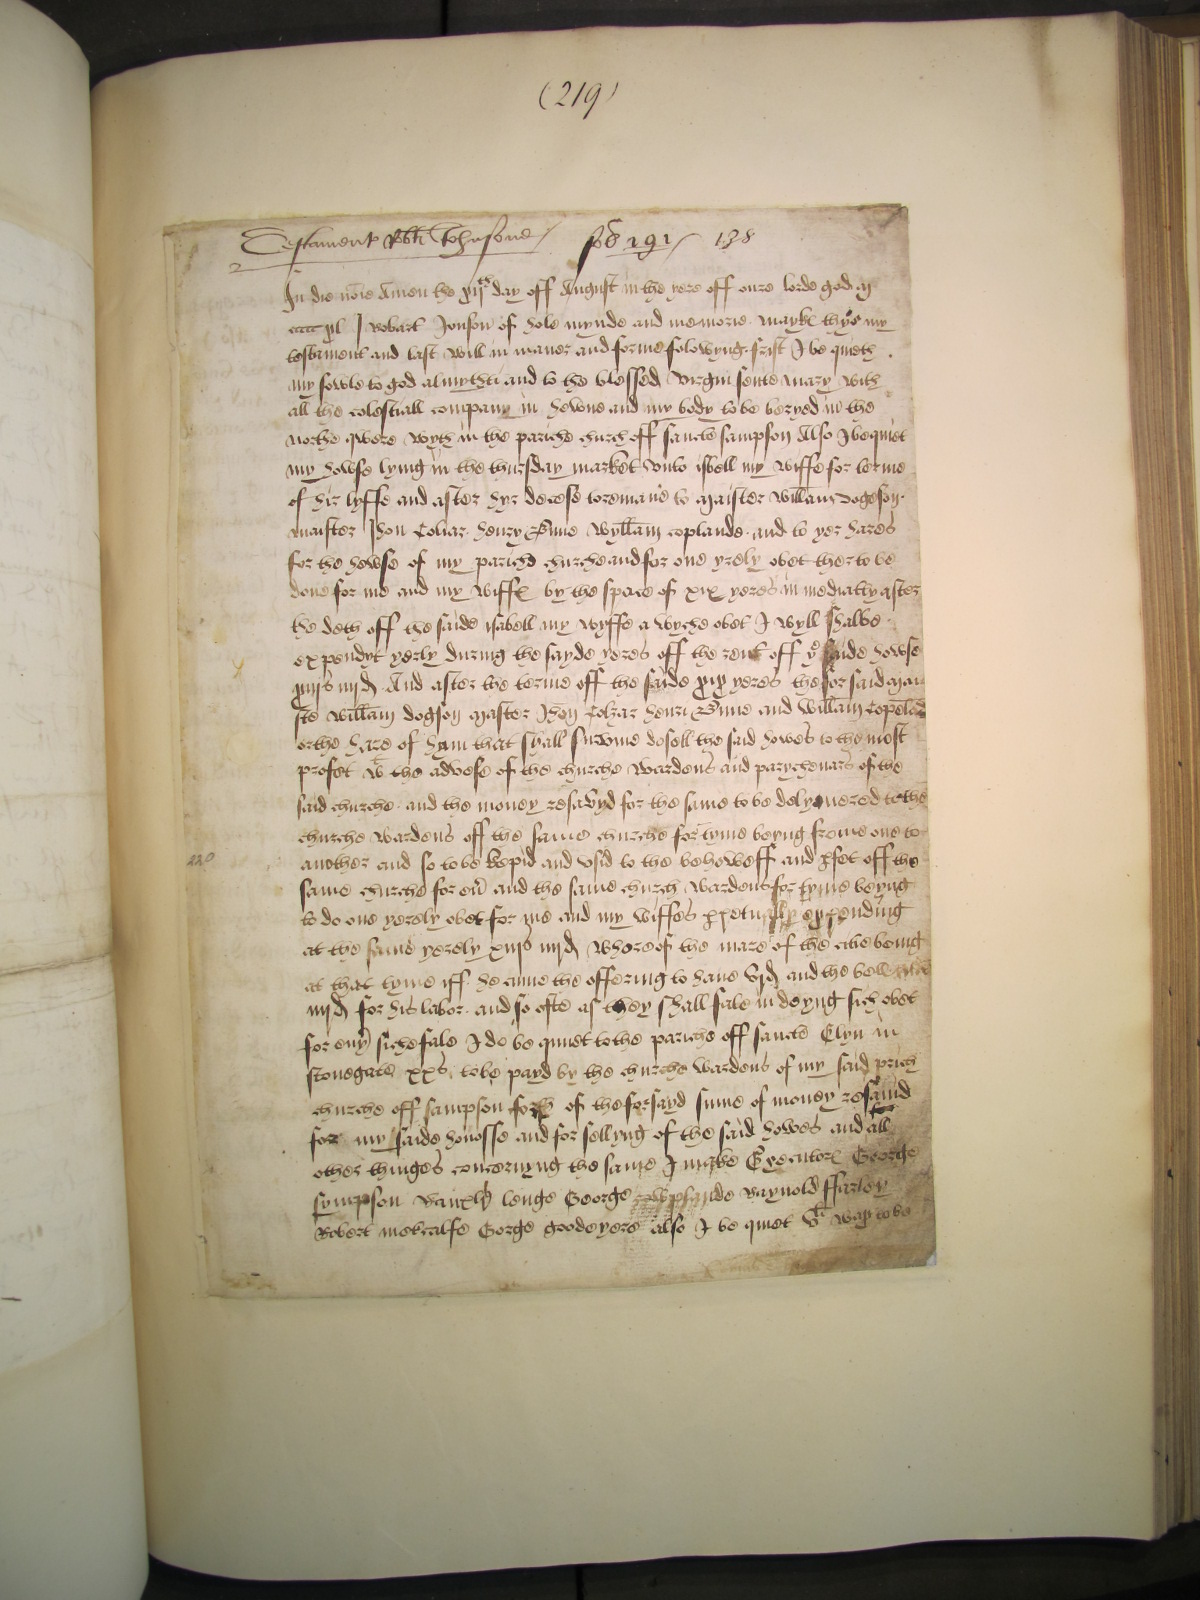 (219)
Testament Robti Johnsone fo 191 138
In die noīe Amen the xijth day off August in the yere off oure lorde god m
ccccc xl I Robart Jonson of hole mynde and memorie mayke thys my
testament and last will in maner and forme folowyng. frist I be queth
my sowle to god almythti and to the blessed virgin sente mary with
all the celestiall company in hevene and my body to be beryed in the
northe qwere wyth in the pariche church off sancte sampson Also I be quiet
my howse lying in the thursday market vnto isbell my wiffe for terme
of hir lyffe and after hyr decese to remane to maister William dogeson
maister Jhon Coltar. henry wyllam coplande. and to yer hares
for the howse of my parich churche and for one yrely obet ther to be
done for me and my wiffe by the space of xix yeres in mediatly after
the deth off the saide isabell my wyffe a wyche obet I wyll shalbe
expendyt yerly during the sayde yeres off the rent off ye saide howse
xiijs iiijd. And after the terme off the saide xix yeres the for said mai
ste william dogson master Jhon Colzar henri and William Copelad
or the hare of hym that shall survive do sell the said howes to the most
profet wt the advese of the churche wardens and parychenars of the
said churche. and the money resavyd for the same to be delyuered to the
churche wardens off the same churche for tyme beyng frome one to
another and so to be kepid and vsid to the behoweff and pfet off the
220
same churche for eur and the same church wardens for tyme beyng
to do one yerely obet for me and my wiffes ppetually expending
at the same yerely xiijs iiijd whereof the mare of the citie being
at that tyme iff he cume the offering to haue vjd and the bell
iiijd for his labor. and so ofte as they shall fale in doyng sich obet
for eny siche fale I do be quiet to the pariche off sancte Elyn in
stonegate xxs to be payd by the churche wardens of my said prich
churche off sampson forth of the forsayd sume of money resavid
for my saide housse and for sellyng of the said howes and all
other thinges concernyng the same I make Executors George
Symson lenge George Raynold ffarley
Robert metcalfe Gorge goodeyere also I be quiet to be